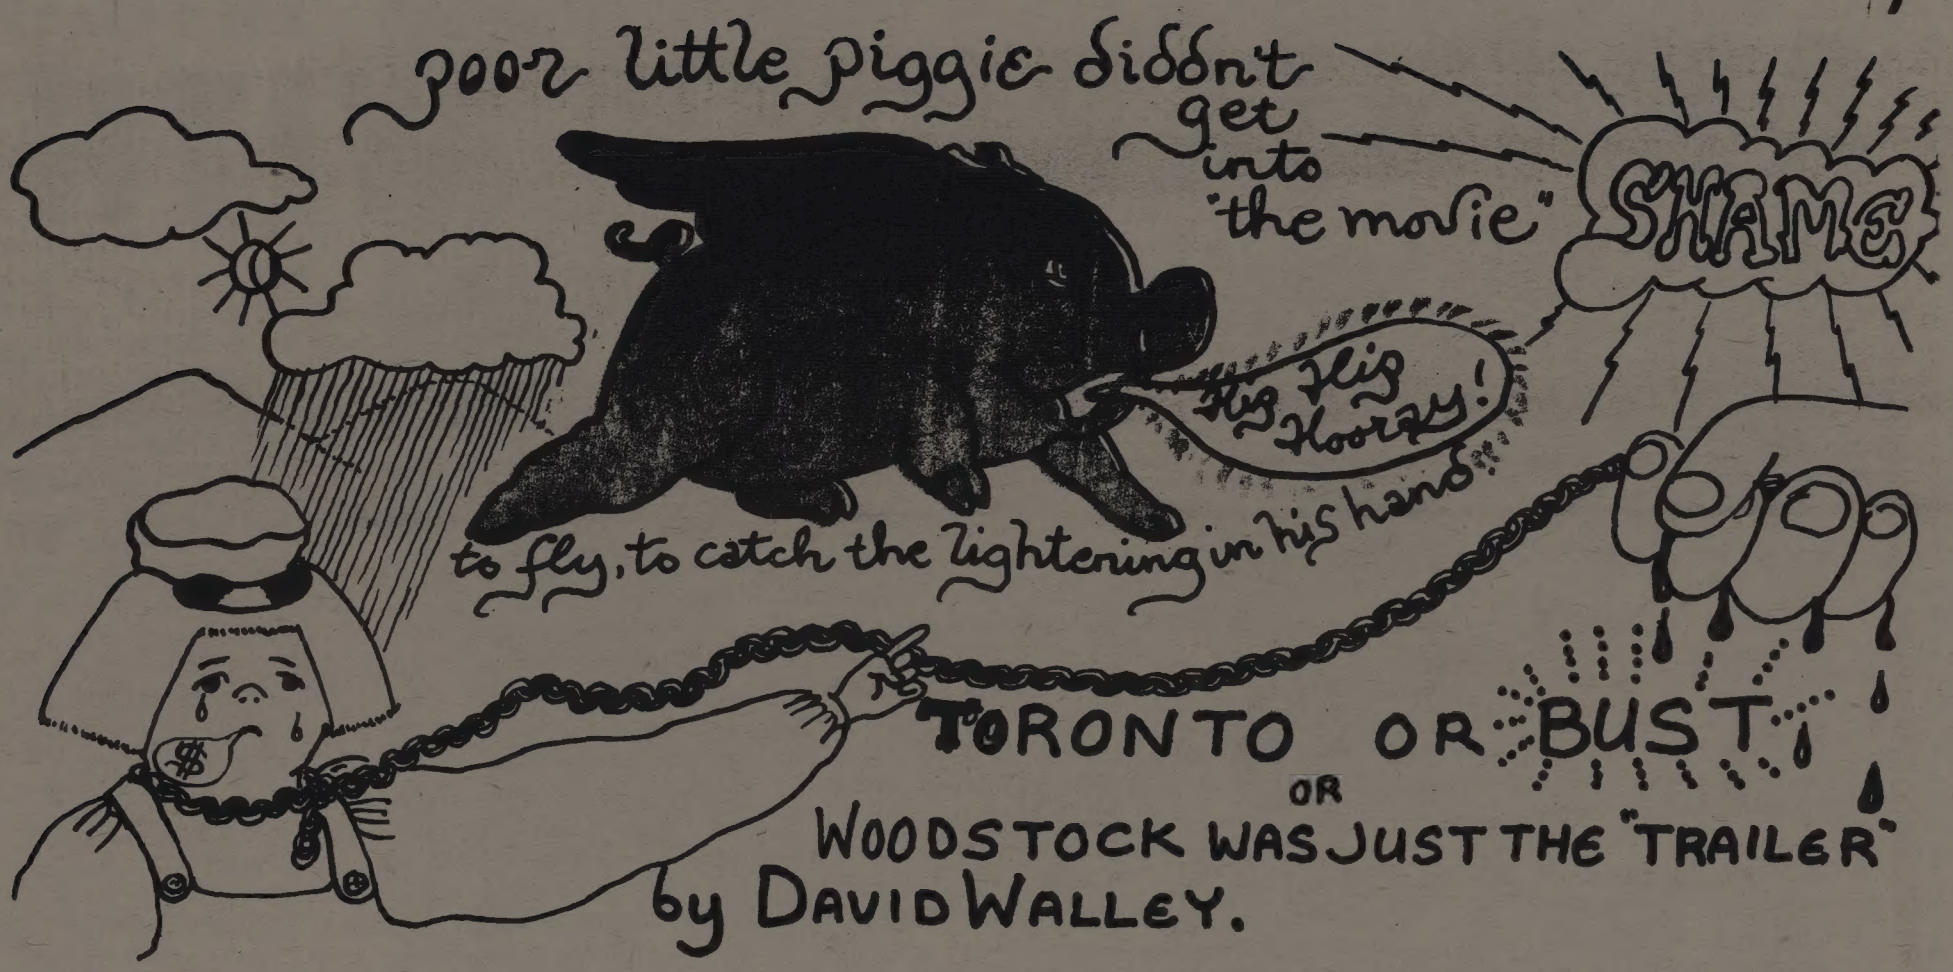 poor little piggie diddnt
get
into
"the movie"
SHAME
Hip Hip
Hooray!
to fly, to catch the lightening in his hand.
$
TORONTO OR BUST
OR
WOODSTOCK WAS JUST THE "TRAILER"
by DAVID WALLEY.